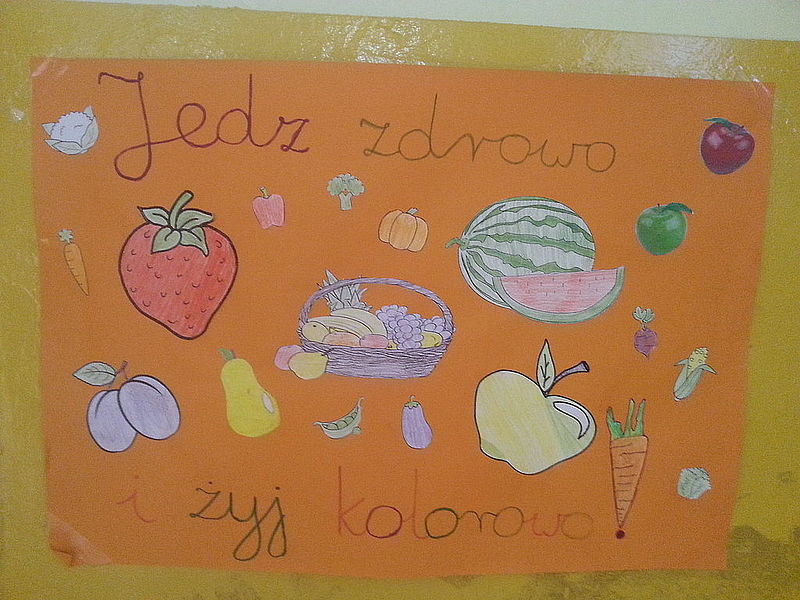 Jedz zdrowo
i żyj kolorowo!